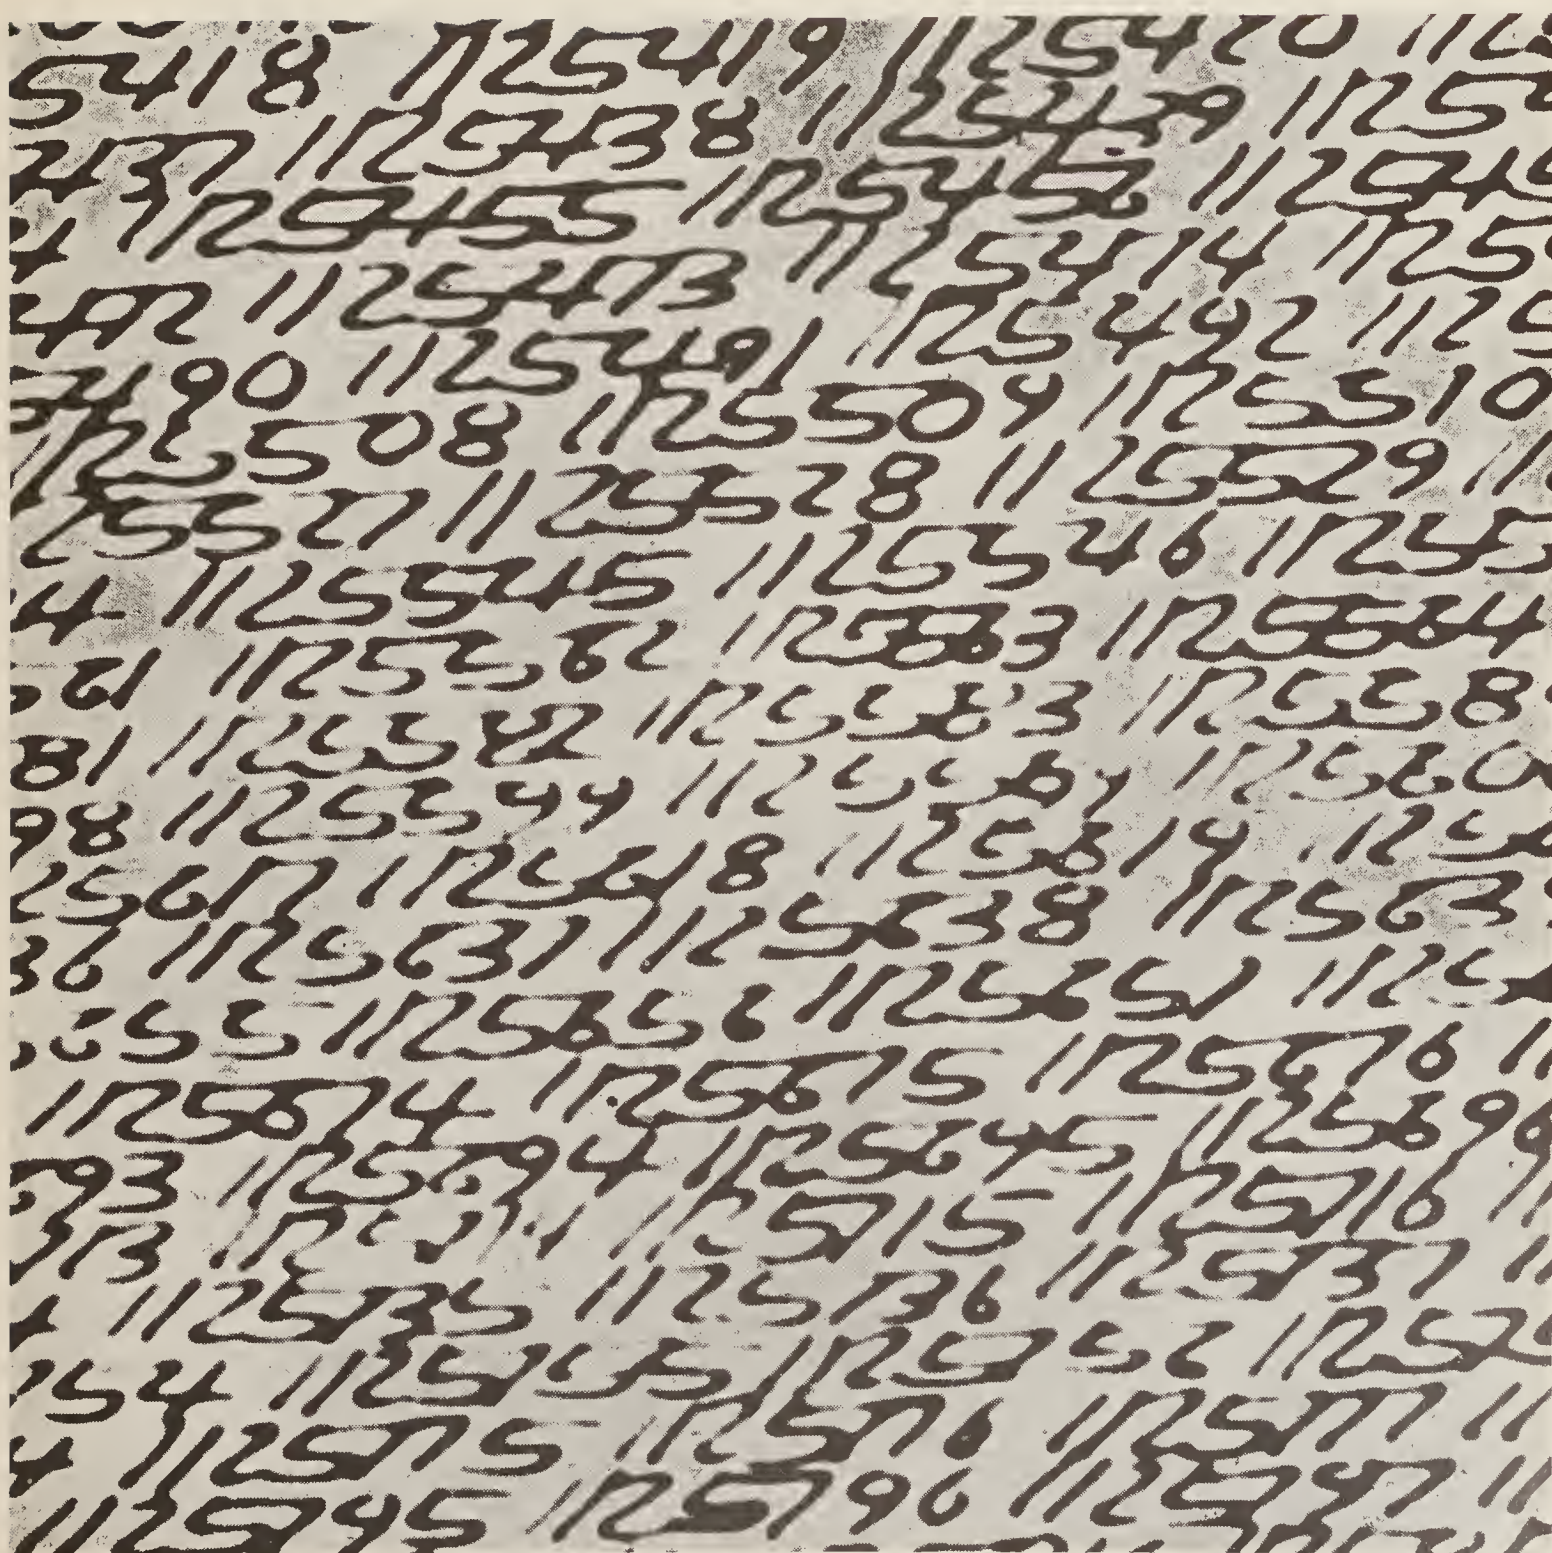 5418 1125419 1125420 112
437 1125438 1125439 1125
4 1125455 1125456 112545
472 1125473 1125474 1125
5490 1125491 1125492 1125
1125508 1125509 1125510
25527 1125528 1125529 11
44 1125545 1125546 11255
561 1125562 1125563 1125564
81 1125582 1125583 112558
98 1125599 112560
25617 1125618 1125619 1125
36 1125637 1125638 112563
5655 1125656 1125657 1125
1125674 1125675 1125676 11
693 1125694 1125695 1125696
713 1125715 1125716 11
1125735 1125736 1125737 11
754 1125755 1125752 11257
4 1125775 1125776 1125777 11
1125795 1125796 1125797 11